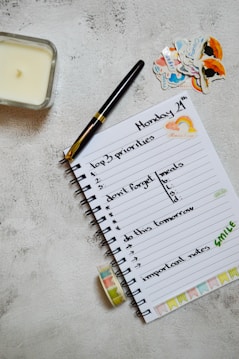 Monday 21th
top 3 priorities
1.
2.
3.
don't forget
meals
b
l
d
s
do this tomorrow
important notes
SMILE